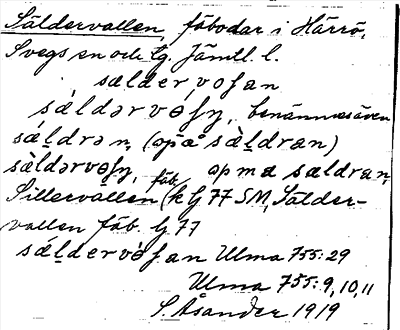 Säldervallen, fäbodar i Härrö,
Svegs sn och tg. Jämtl. l.
sælder,voſan
sàldərvəſn, benämnes även
sǽldrən, (opå sæ̀ldran)
sàldərvəſn, fäb. opmæ sældran,
Sillervallen (k G 77 SM, Sälder-
vallen fäb. G 77
sǽldervə̀ſan Ulma 755:29
Ulma 755:9,10,11
S. Åsander 1919